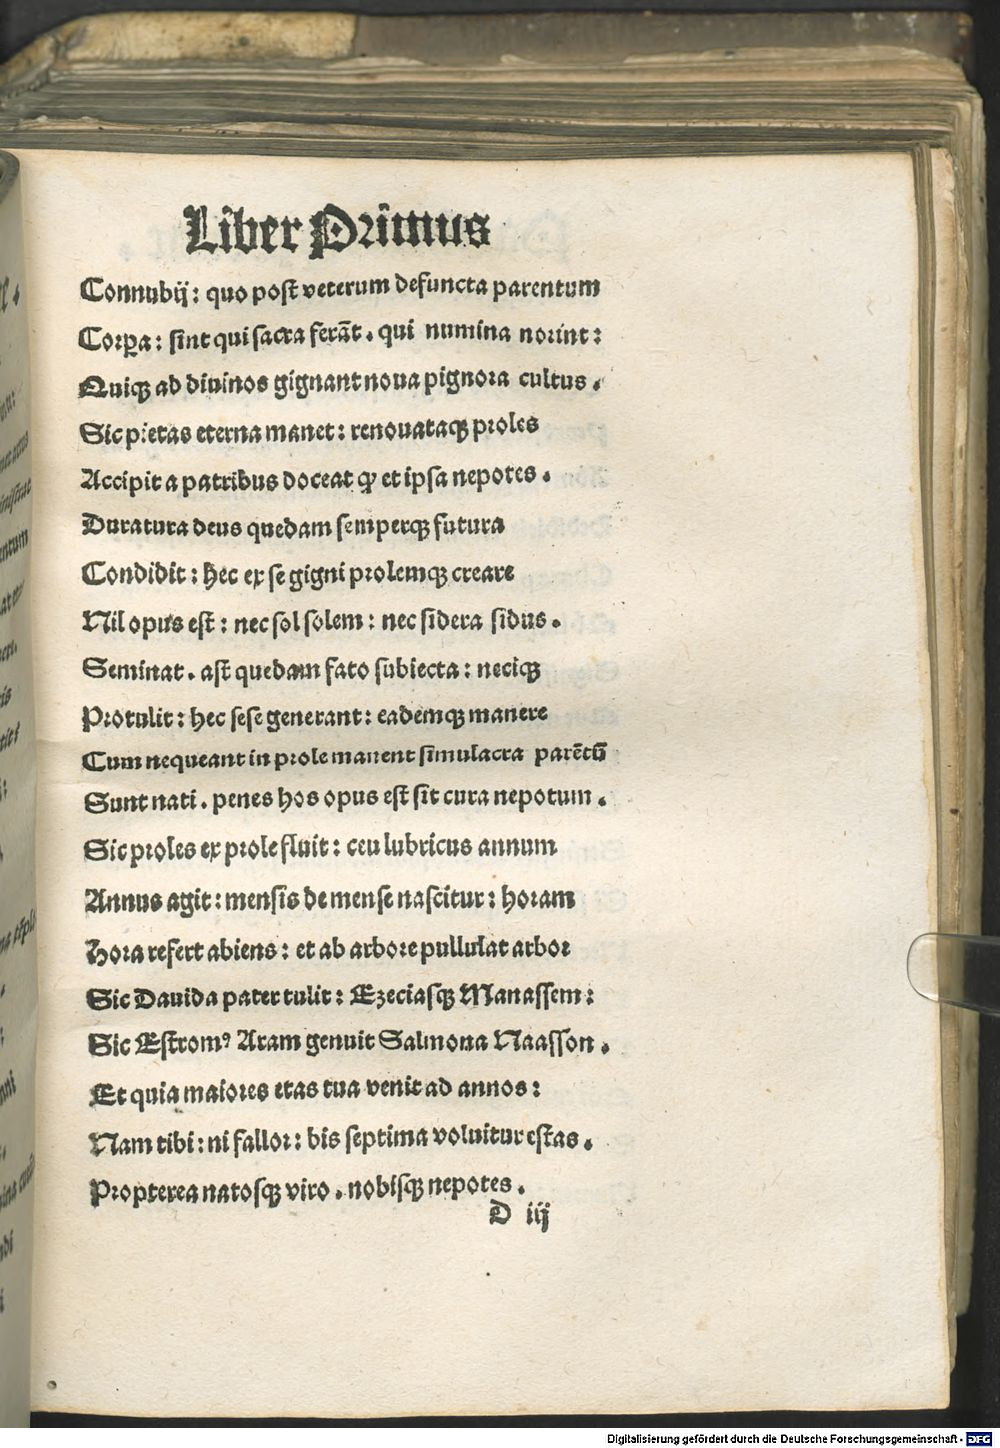 Liber Primus
Connubij: quo post veterum defuncta parentum
Corꝑa: sint qui sacra ferāt. qui numina norint:
Quiqꝫ ad diuinos gignant noua pignora cultus.
Sic pietas eterna manet: renouataqꝫ proles
Accipit a patribus doceat ꝙ et ipsa nepotes.
Duratura deus quedam semperqꝫ futura
Condidit: hec ex se gigni prolemqꝫ creare
Nil opus est: nec sol solem: nec sidera sidus.
Seminat. ast quedam fato subiecta: neciqꝫ
Protulit: hec sese generant: eademqꝫ manere
Cum nequeant in prole manent simulacra parētū
Sunt nati. penes hos opus est sit cura nepotum.
Sic proles ex prole fluit: ceu lubricus annum
Annus agit: mensis de mense nascitur: horam
Hora refert abiens: et ab arbore pullulat arbor
Sic Dauida pater tulit: Ezeciasqꝫ Manassem:
Sic Estromꝰ Aram genuit Salmona Naasson.
Et quia maiores etas tua venit ad annos:
Nam tibi: ni fallor: bis septima voluitur estas.
Propterea natosqꝫ viro. nobisqꝫ nepotes.
D iij
Digitalisierung gefördert durch die Deutsche Forschungsgemeinschaft - DFG